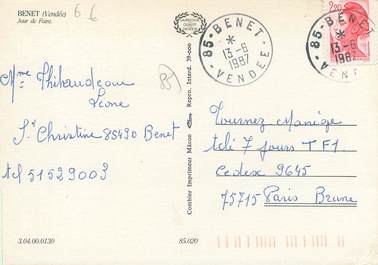 BENET (Vendée)
Jour de Foire.
66
Mme Thibaudeau
Léone
St Christine 85490 Benet
tel 51529003
Combier Imprimeur Mâcon
Repro. Interd. 39-000
85-BENET
13-6
1987
VENDEE
85-BENET
13-6
198
VEN
2,20
Tournez Manège
télé 7 jours TF1
Cedex 9645
75715 Paris Brune
3.04.00.0130
85/020